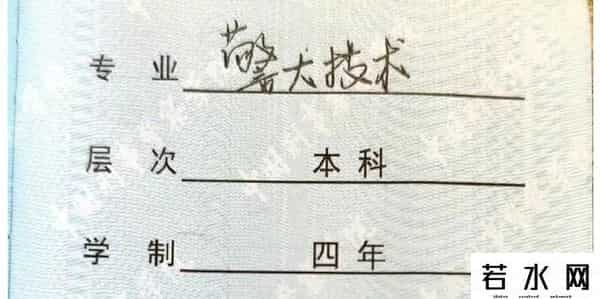 专 业 警犬技术
层 次 本科
学 制 四年
若水网